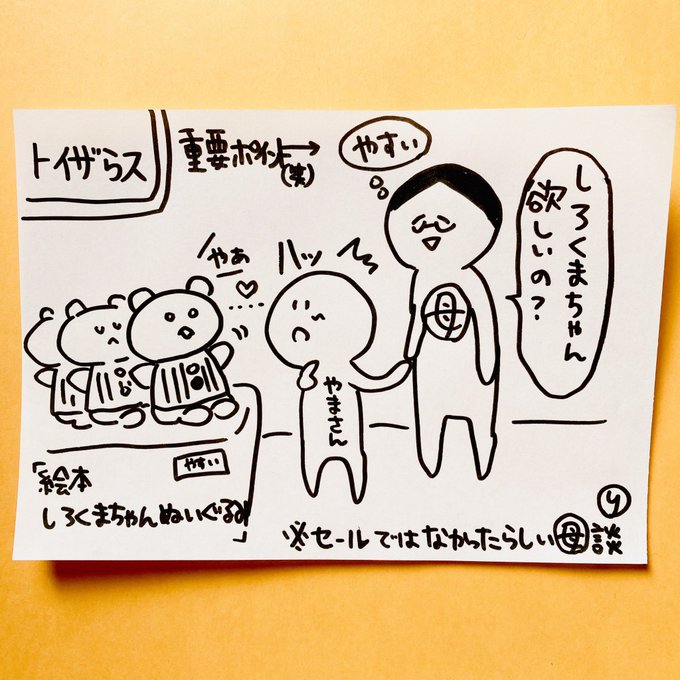 トイザらス
重要ポイント→
(笑)
やすい
しろくまちゃん
欲しいの?
やあ
ハッ
母
やまさん
やすい
「絵本
しろくまちゃんぬいぐるみ」
※セールではなかったらしい母談
4